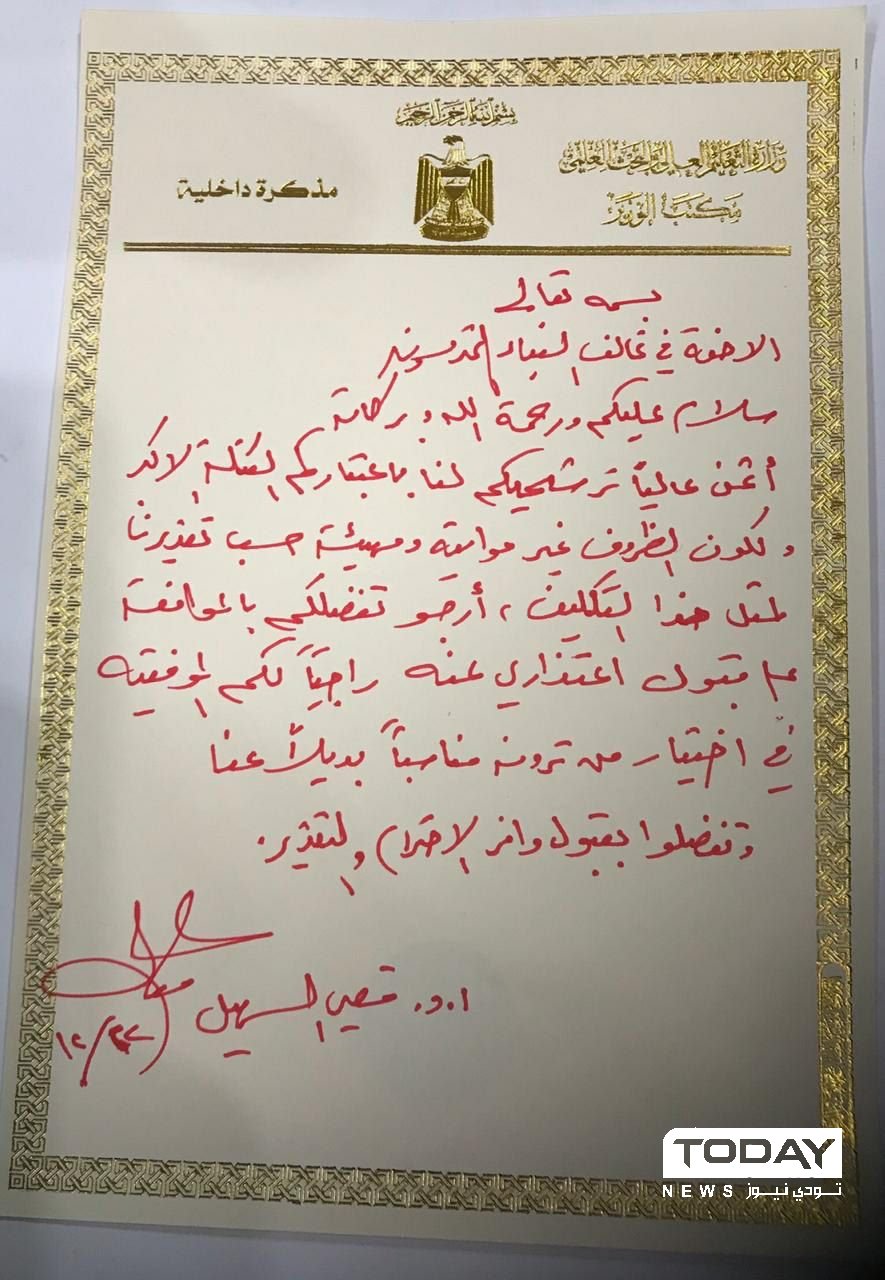 بسم الله الرحمن الرحيم
وزارة التعليم العالي والبحث العلمي
مكتب الوزير
مذكرة داخلية
بسمه تعالى
الاخوة في تحالف البناء المحترمون
سلام عليكم ورحمة الله وبركاته
أثمن عالياً ترشيحكم لنا باعتباركم الكتلة الاكبر
ولكون الظروف غير مواتية ومهيئة حسب تقديرنا
لمثل هذا التكليف، أرجو تفضلكم بالموافقة
على قبول اعتذاري عنه راجياً لكم الموفقية
في اختيار من ترونه مناسباً بديلاً عنا
وتفضلوا بقبول وافر الاحترام والتقدير.
ا.د. قصي السهيل
١٢/
TODAY
NEWS تودي نيوز